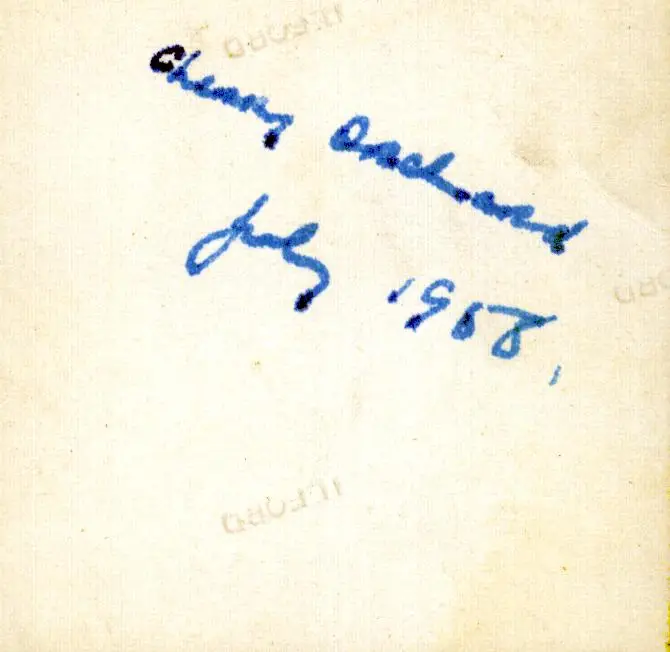 ILFORD
Cherry Orchard
July 1958.
ILFORD
ILFORD